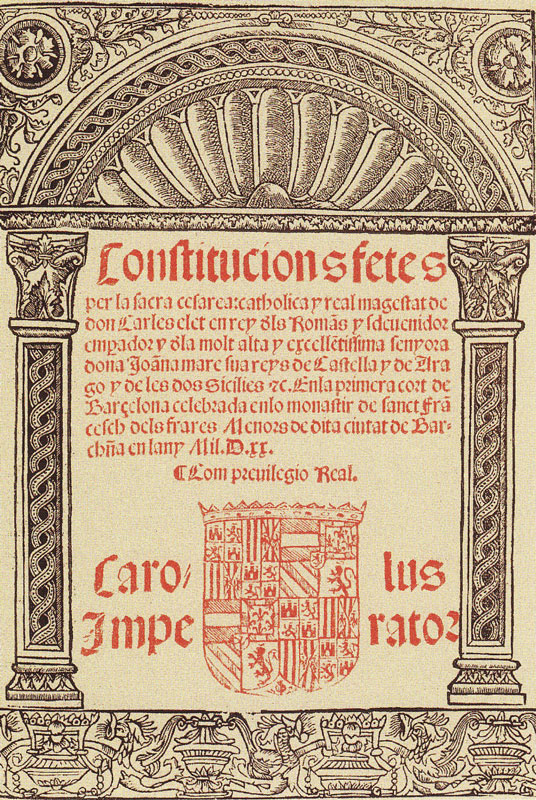 Constitucions fetes
per la sacra cesarea: catholica y real magestat de
don Carles elet en rey dls Romãs y sdeuenidor
empador y dla molt alta y excellẽtissima senyora
dona Joãna mare sua reys de Castella y de Ara
go y de les dos Sicilies ⁊c. En la primera cort de
Barçelona celebrada enlo monastir de sanct Frã
cesch dels frares Menors de dita ciutat de Bar-
chña en lany Mil.D.xx.
¶Com preuilegio Real.
Caro/ lus
Impe rator